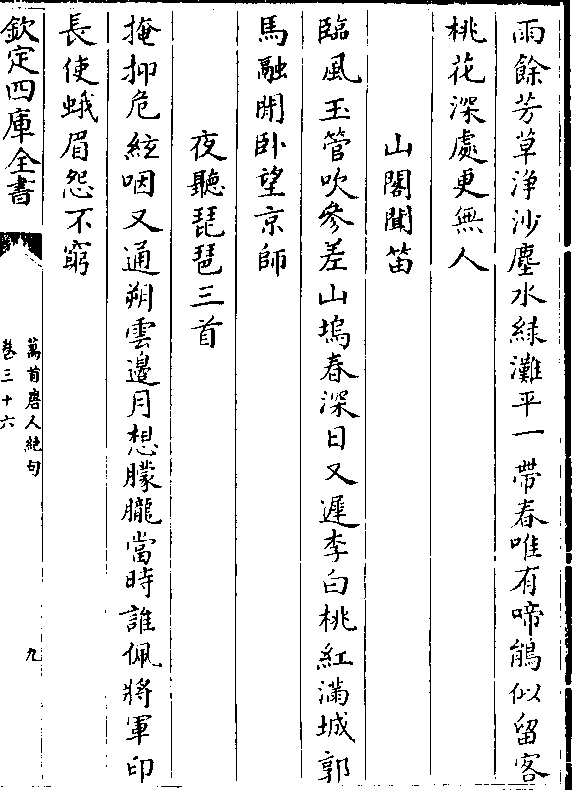 雨餘芳草淨沙塵水緑灘平一帶春唯有啼鵑似留客
桃花深處更無人
山閣聞笛
臨風玉管吹參差山塢春深日又遲李白桃紅滿城郭
馬融閒卧望京師
夜聽琵琶三首
掩抑危絃咽又通朔雲邊月想朦朧當時誰佩將軍印
長使蛾眉怨不窮
欽定四庫全書
萬首唐人絶句
卷三十六
九